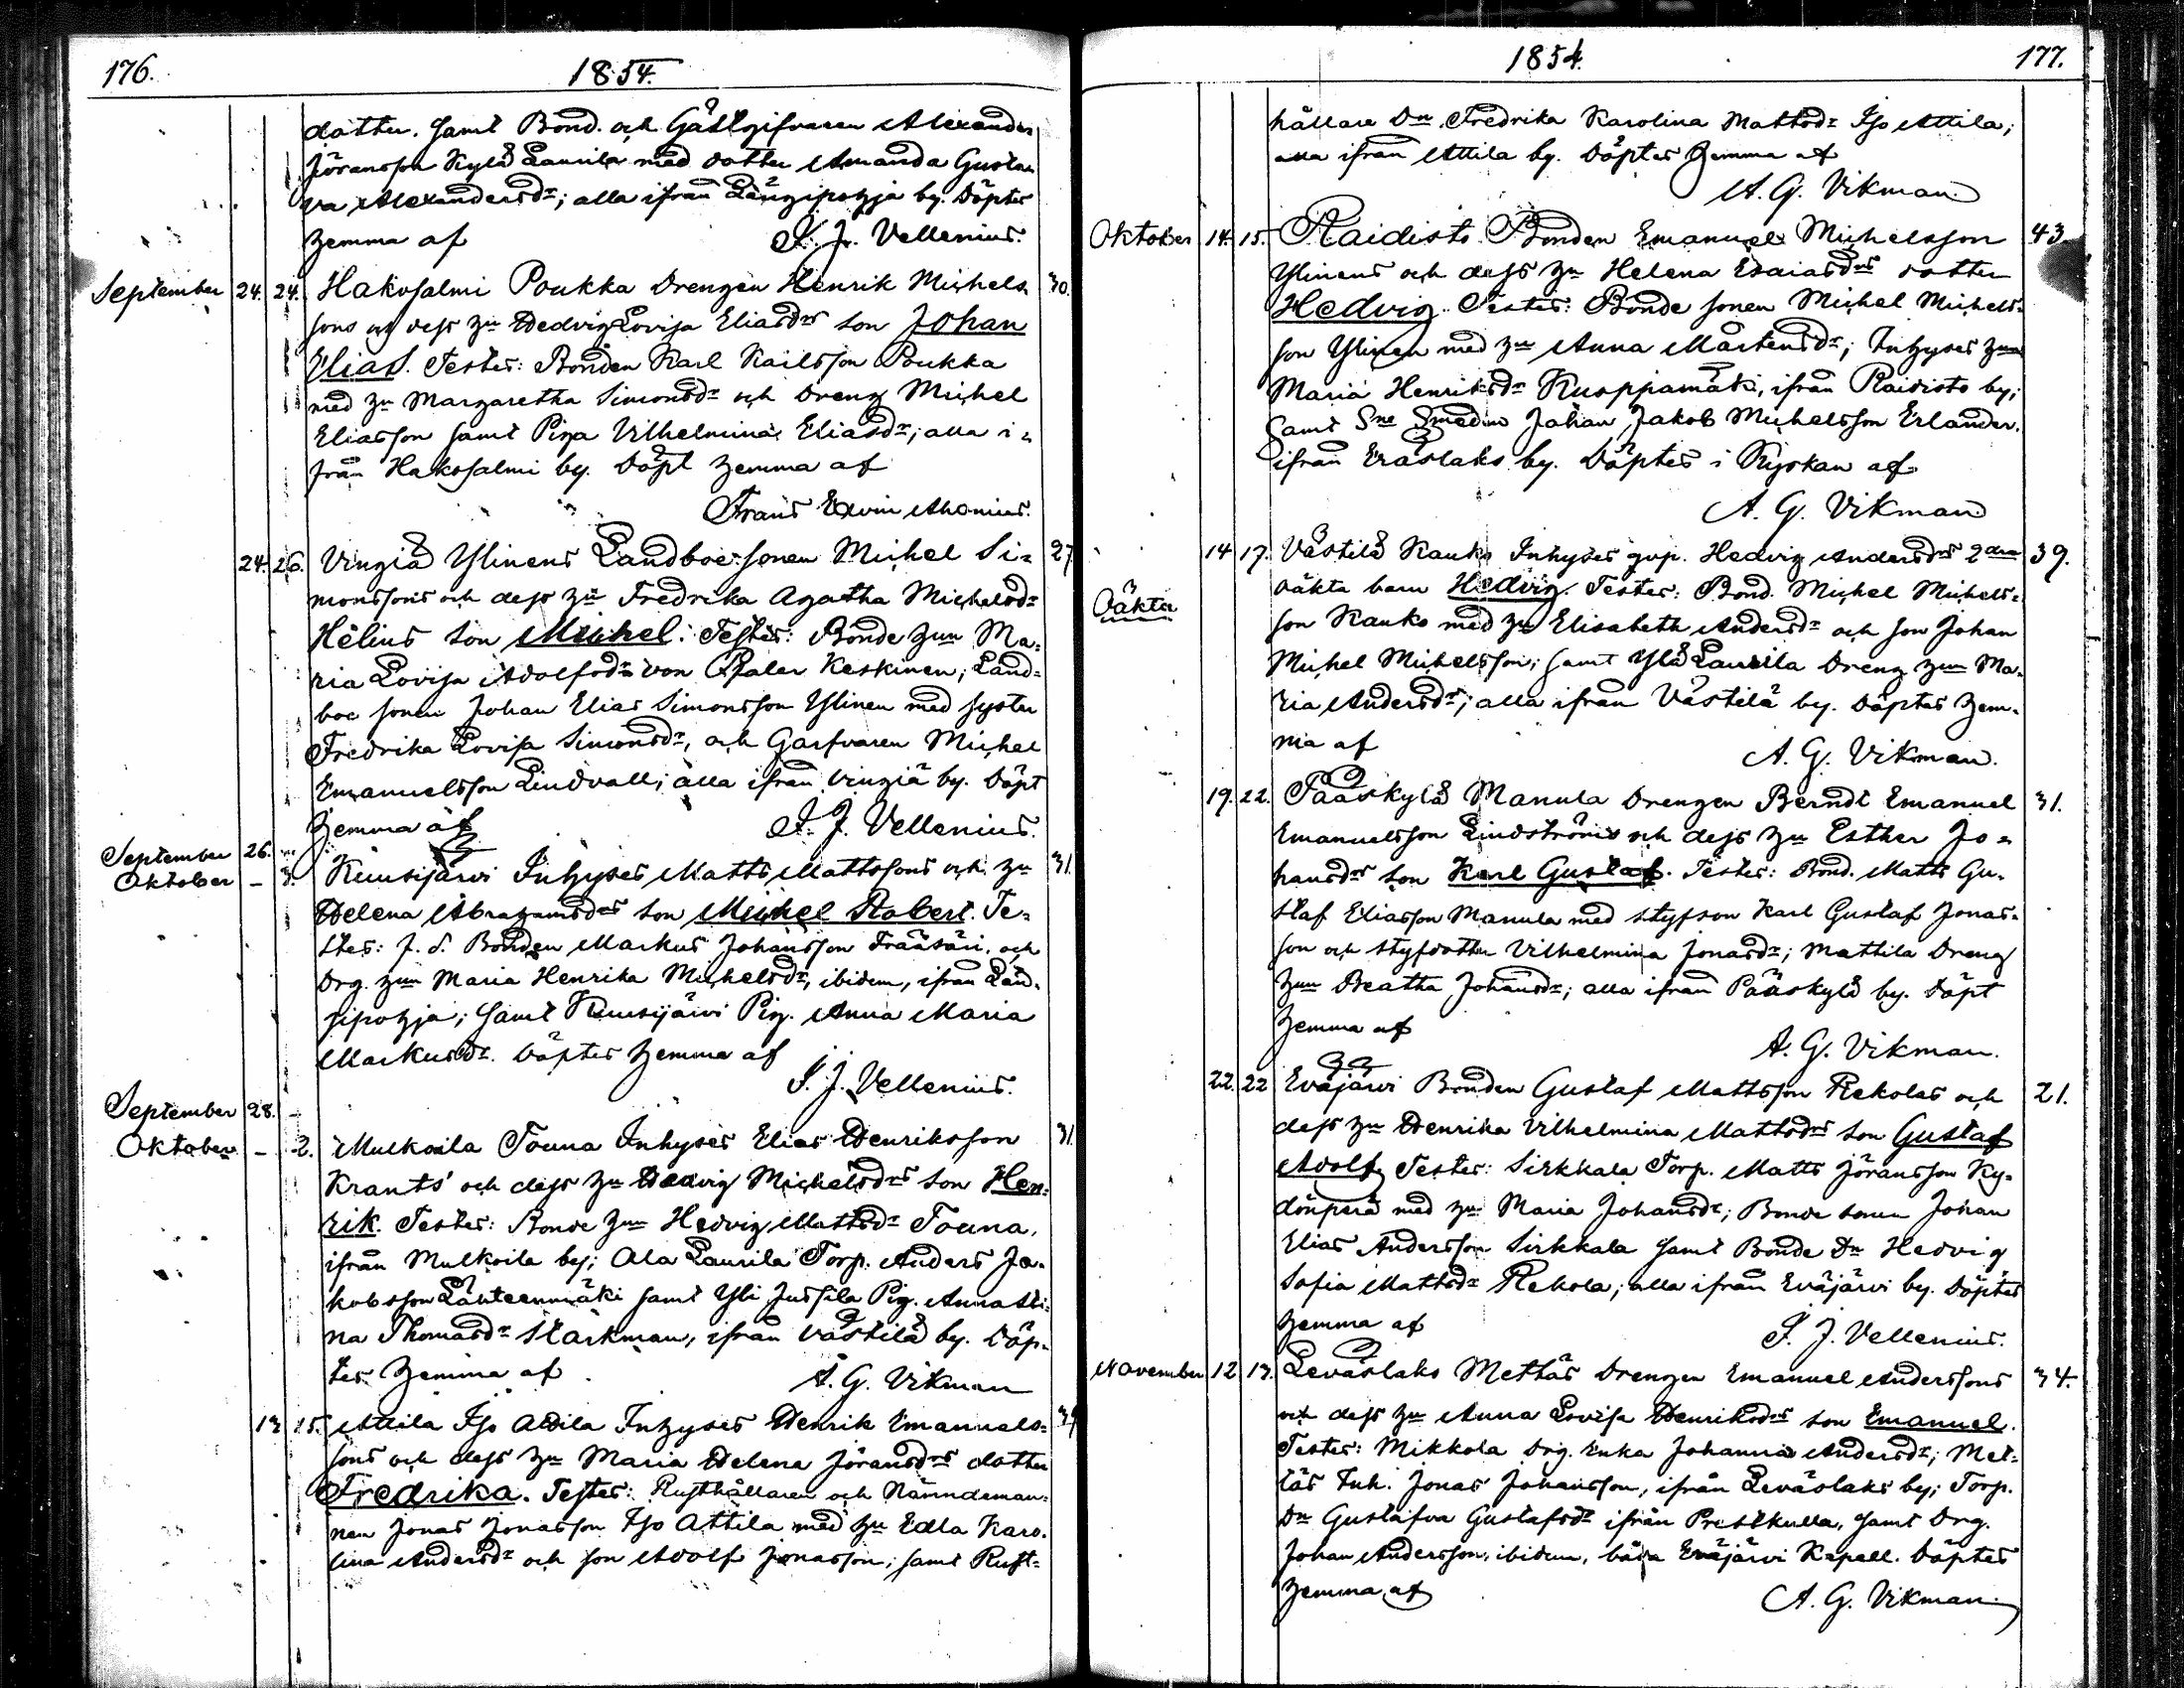 176.
1854.
dotter. samt Bond. och Gästgifvaren Alexander
Jöransson Kylä Laurila med dotter Amanda Gusta-
va Alexandersdr; alla ifrån Längipohja by. Döptes
hemma af J. J. Vellenius.
September 24. 24. Hakosalmi Poukka Drengen Henrik Michels- 30.
sons och dess hu Hedvig Lovisa Eliasdrs son Johan
Elias. Testes: Bonden Karl Karlsson Poukka
med hu Margaretha Simonsdr och Dreng Michel
Eliasson samt Piga Vilhelmina Eliasdr; alla i-
från Hakosalmi by. Döpt hemma af
Frans Edvin Ahonius.
24. 26. Vingiä Ylinens Landboesonen Michel Si- 27
monssons och dess hu Fredrika Agatha Michelsdr
Helius son Michel. Testes: Bonde hun Ma-
ria Lovisa Adolfsdr von Pfaler Keskinen; Land-
boe sonen Johan Elias Simonsson Ylinen med syster
Fredrika Lovisa Simonsdr, och Garfvaren Michel
Emanuelsson Lindvall; alla ifrån Vingiä by. Döpt
hemma af J. J. Vellenius.
September 26.
Oktober – 3. Kuusijärvi Inhyses Matts Mattssons och hu 31.
Helena Abrahamsdrs son Michel Robert. Te-
stes: f. d. Bonden Markus Johansson Trääsäri, och
Drg. hun Maria Henrika Michelsdr, ibidem, ifrån Län-
gipohja; samt Kuusijärvi Pig. Anna Maria
Markusdr. Döptes hemma af
J. J. Vellenius.
September 28. –
Oktober – 2. Mulkoila Touna Inhyses Elias Henriksson 31
Krants' och dess hu Hedvig Michelsdrs son Hen-
rik. Testes: Bonde hun Hedvig Mattsdr Touna,
ifrån Mulkoila by; Ala Laurila Torp. Anders Ja-
kobsson Lähteenmäki samt Yli Jussila Pig. Anna Sti-
na Thomasdr Starkman, ifrån Västilä by. Döp-
tes hemma af A. G. Vikman
13 15. Attila Iso Attila Inhyses Henrik Emanuels- 39
sons och dess hu Maria Helena Jöransdrs dotter
Fredrika. Testes: Rusthållaren och Nämndeman-
nen Jonas Jonasson Iso Attila med hu Edla Karo-
lina Andersdr och son Adolf Jonasson; samt Rust-
1854.
177.
hållare Dr. Fredrika Karolina Mattsdr Iso Attila;
alla ifrån Attila by. Döptes hemma af
A. G. Vikman
Oktober 14. 15. Raidisto Bonden Emanuel Michelsson 43
Ylinens och dess hu Helena Esaiasdrs dotter
Hedvig. Testes: Bonde sonen Michel Michels-
son Ylinen med hu Anna Mårtensdr; Inhyses hun
Maria Henriksdr Kuoppamäki, ifrån Raidisto by;
samt Sne Smeden Johan Jakob Michelsson Erlander.
ifrån Eräslaks by. Döptes i Kyrkan af
A. G. Vikman
14 17. Västilä Kauko Inhyses qvp. Hedvig Andersdrs 2dra 39.
Oäkta
oäkta barn Hedvig. Testes: Bond. Michel Michels-
son Kauko med hu Elisabeth Andersdr och son Johan
Michel Michelsson; samt Ylä Laurila Dreng hun Ma-
ria Andersdr; alla ifrån Västilä by. Döptes hem-
ma af A. G. Vikman.
19. 22. Pääskylä Manula Drengen Berndt Emanuel 31.
Emanuelsson Lindströms och dess hu Esther Jo-
hansdrs son Karl Gustaf. Testes: Bond. Matts Gu-
staf Eliasson Manula med styfson Karl Gustaf Jonas-
son och styfdotter Vilhelmina Jonasdr; Mattila Dreng
hun Beatha Johansdr; alla ifrån Pääskylä by. Döpt
hemma af
A. G. Vikman.
22. 22 Eväjärvi Bonden Gustaf Mattsson Rekolas och 21.
dess hu Henrika Vilhelmina Mattsdrs son Gustaf
Adolf. Testes: Sirkkala Torp. Matts Jöransson Ky-
dönperä med hu Maria Johansdr; Bonde sonen Johan
Elias Andersson Sirkkala samt Bonde Dr Hedvig
Sofia Mattsdr Rekola; alla ifrån Eväjärvi by. Döptes
hemma af J. J. Vellenius.
November 12 13. Leväslaks Mettäs Drengen Emanuel Anderssons 34.
och dess hu Anna Lovisa Henriksdrs son Emanuel.
Testes: Mikkola Drg. Enka Johanna Andersdr; Met-
täs Inh. Jonas Johansson, ifrån Leväslaks by; Torp.
Dr Gustafva Gustafsdr ifrån Prestkulla, samt Drg.
Johan Andersson, ibidem, båda Eväjärvi Kapell. Döptes
hemma af A. G. Vikman.